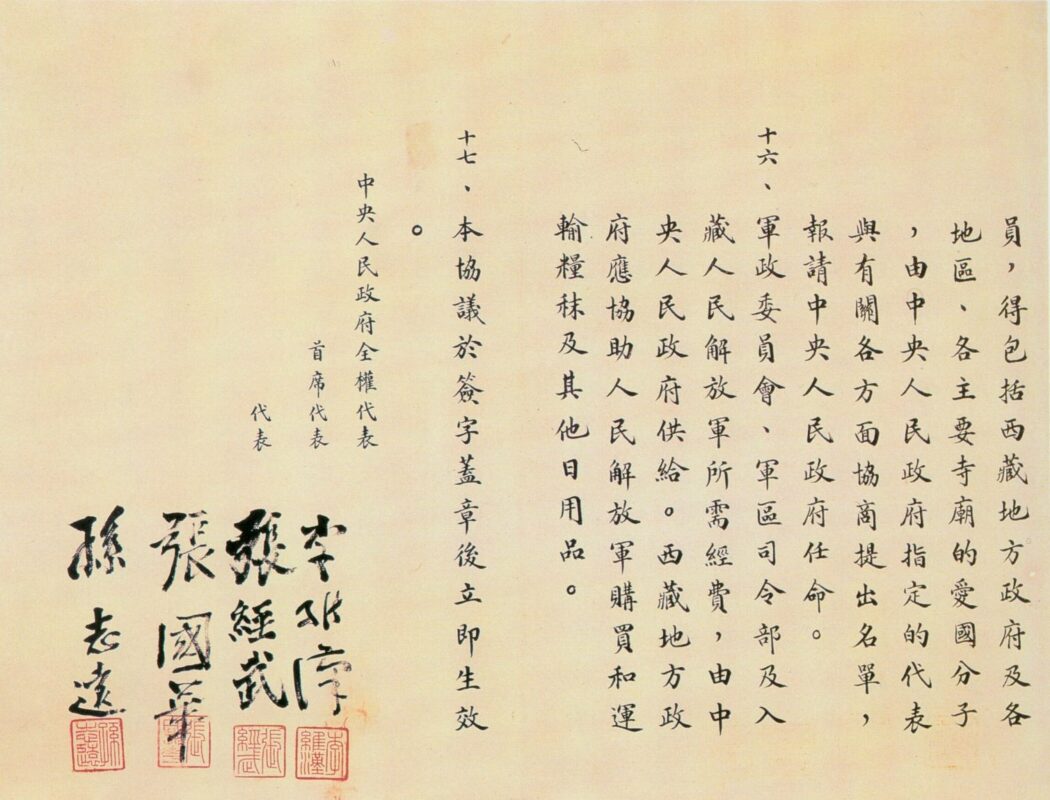 員，得包括西藏地方政府及各
地區、各主要寺廟的愛國分子
，由中央人民政府指定的代表
與有關各方面協商提出名單，
報請中央人民政府任命。
十六、軍政委員會、軍區司令部及入
藏人民解放軍所需經費，由中
央人民政府供給。西藏地方政
府應協助人民解放軍購買和運
輸糧秣及其他日用品。
十七、本協議於簽字蓋章後立即生效
。
中央人民政府全權代表
首席代表
代表
李維漢
張經武
張國華
孫志遠
張經武
孫志遠